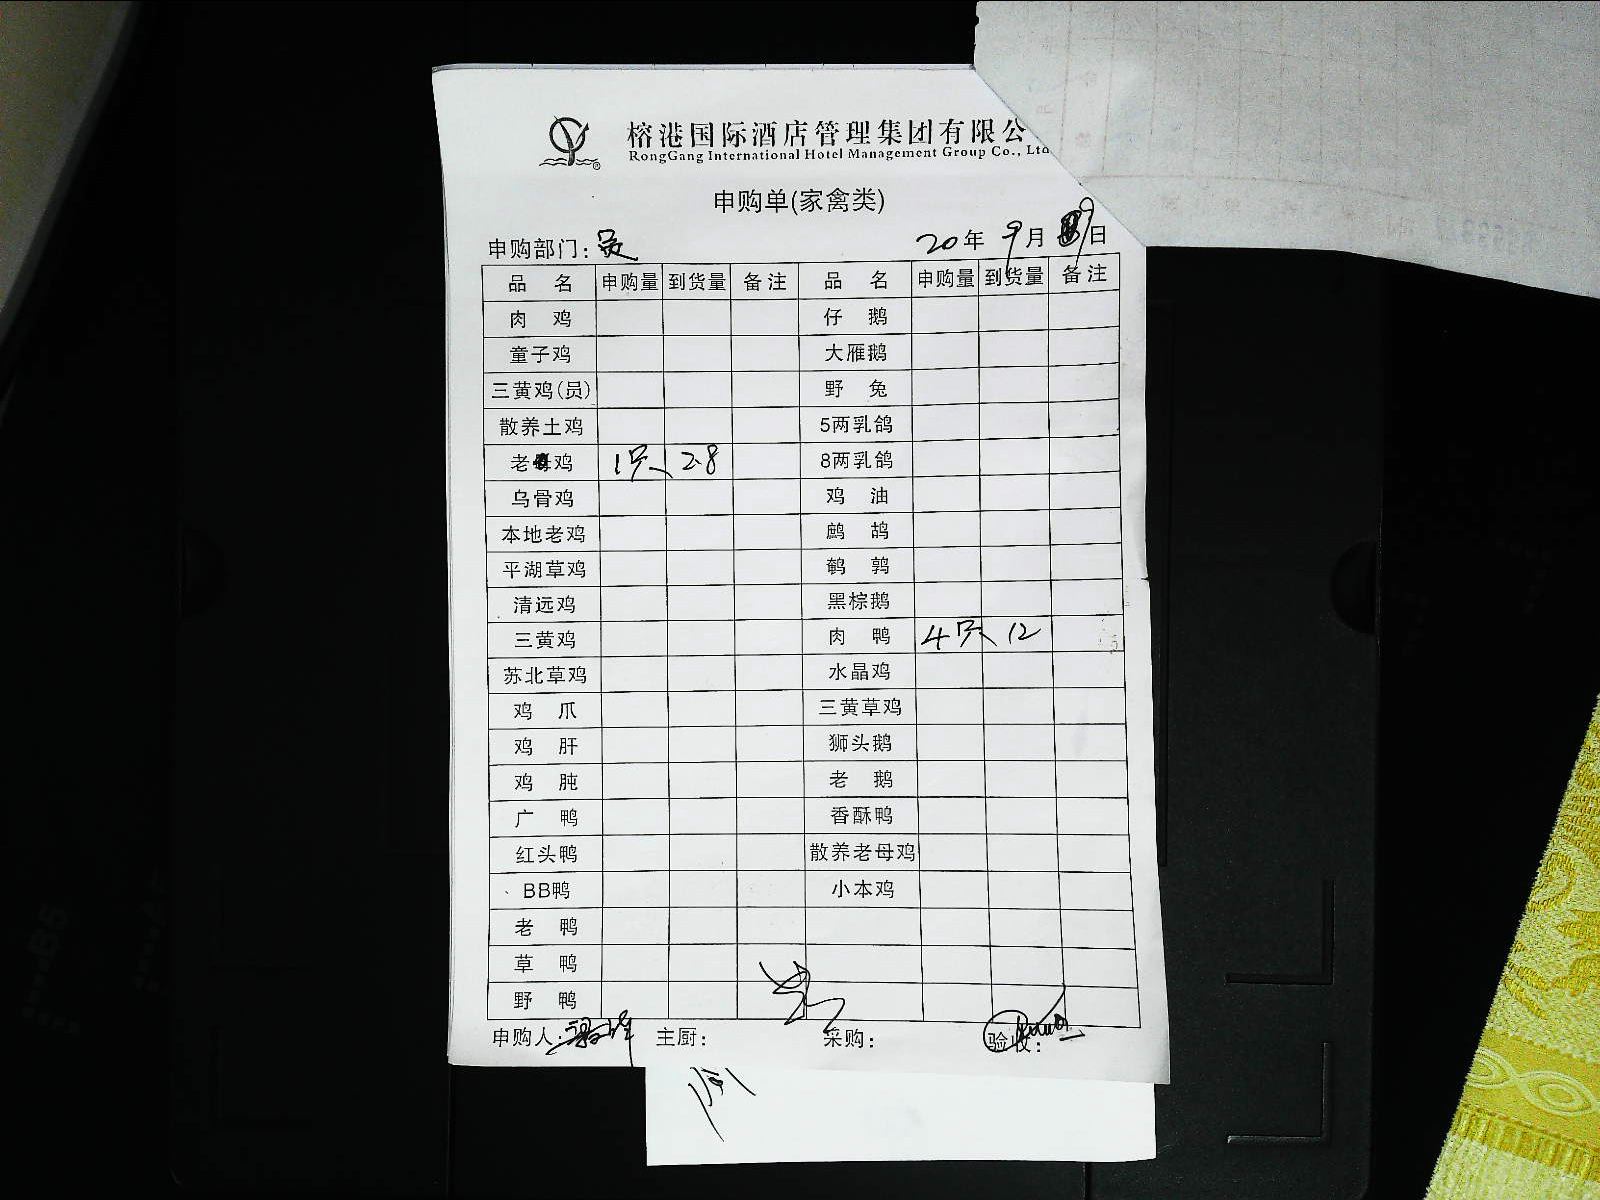 榕港国际酒店管理集团有限公
RongGang International Hotel Management Group Co., Ltd
申购单(家禽类)
申购部门: 20年 9月 9日
品 名 申购量 到货量 备注 品 名 申购量 到货量 备注
肉 鸡 仔 鹅
童子鸡 大雁鹅
三黄鸡(员) 野 兔
散养土鸡 5两乳鸽
老母鸡 1只 2.8 8两乳鸽
乌骨鸡 鸡 油
本地老鸡 鹧 鸪
平湖草鸡 鹌 鹑
清远鸡 黑棕鹅
三黄鸡 肉 鸭 4只 12
苏北草鸡 水晶鸡
鸡 爪 三黄草鸡
鸡 肝 狮头鹅
鸡 肫 老 鹅
广 鸭 香酥鸭
红头鸭 散养老母鸡
BB鸭 小本鸡
老 鸭
草 鸭
野 鸭
申购人: 主厨: 采购: 验收: